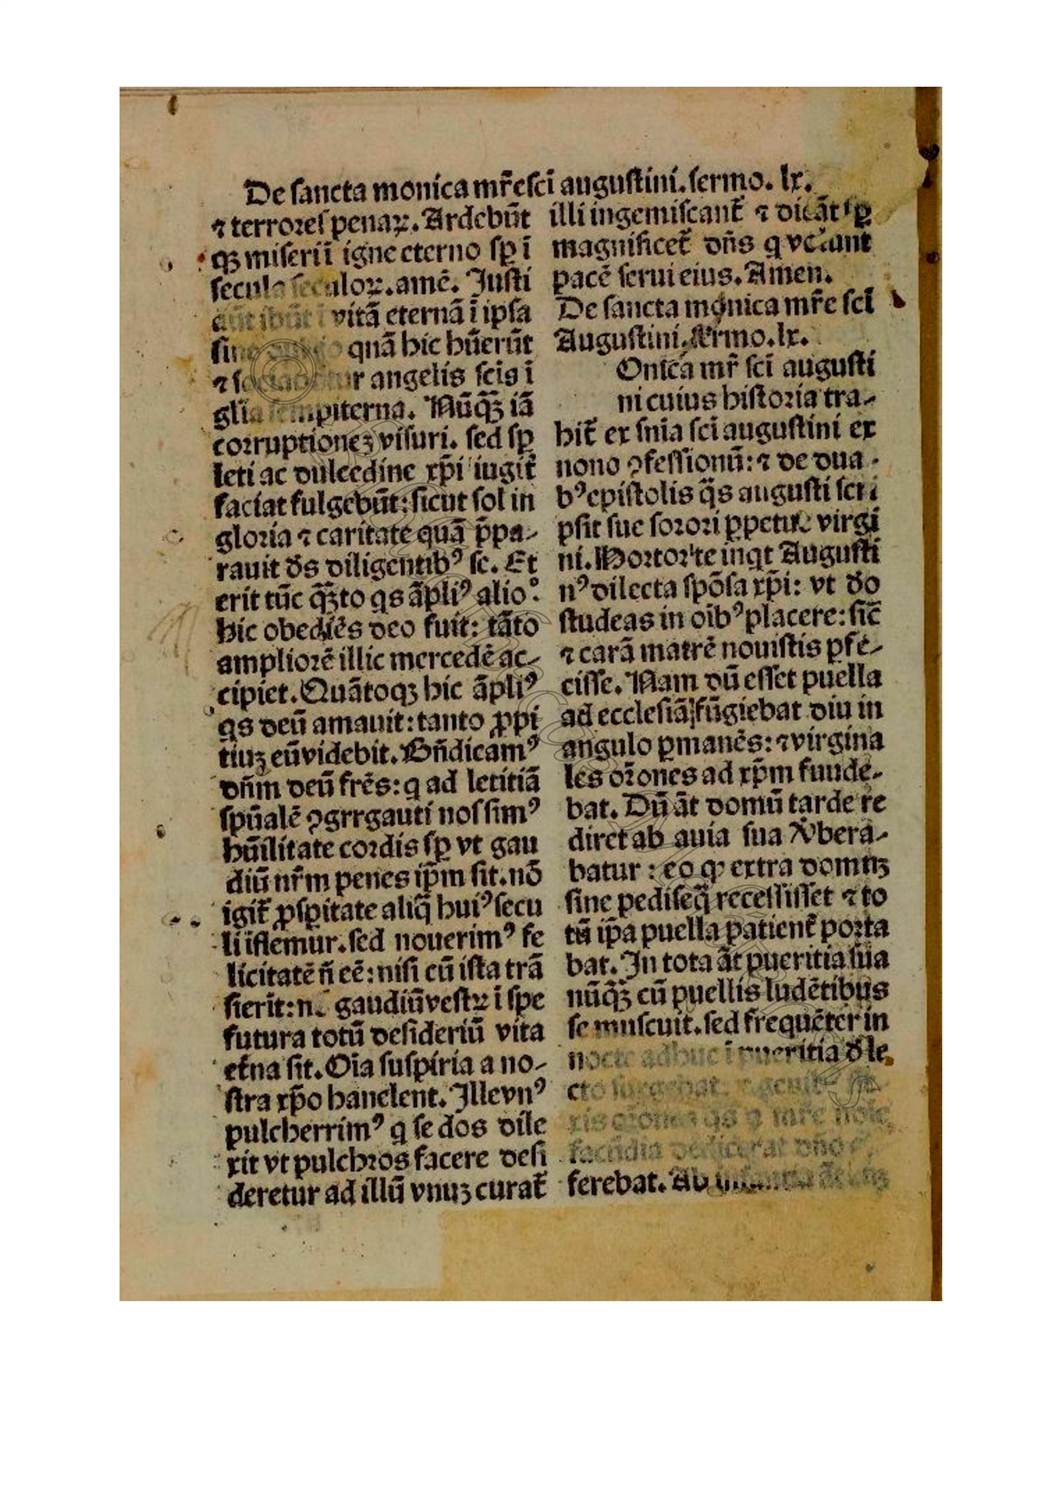 De sancta monica mr̃e sci augustini. sermo. lx.
⁊ terrores penaꝝ. Ardebũt
qꝫ miserii igne eterno sp̱ ĩ
secula seculoꝝ. amẽ. Justi
vitã eternã ĩ ipsa
quã hic hũerũt
⁊ r angelis scis ĩ
gl̃ia sempiterna. Nũq̃ꝫ iã
corruptioneꝫ visuri. sed sp̱
leti ac dulcedine xp̃i iugit̃
faciat fulgebũt: sicut sol in
gloria ⁊ caritate quã p̃pa-
rauit ds̃ diligentibꝰ se. Et
erit tũc q̃ꝫto qs ãpliꝰ alio:
hic obediẽs deo fuit: tãto
ampliorẽ illic mercedẽ ac-
cipiet. Quãtoqꝫ hic ãpliꝰ
qs deũ amauit: tanto ꝓpi
tiuꝫ eũ videbit. Bñdicamꝰ
dñm deũ fr̃es: q ad letitiã
sp̃ualẽ ꝯgrrgauti nos simꝰ
hũilitate cordis sp̱ vt gau
diũ nr̃m penes ip̃m sit. nõ
igit̃ ꝓsp̱itate aliq̃ huiꝰ secu
li iflemur. sed nouerimꝰ fe
licitatẽ ñ eẽ: nisi cũ ista trã
sierĩt: gaudiũ vestꝝ ĩ spe
futura totũ desideriũ vita
et̃na sit. Oĩa suspiria a no-
stra xp̃o hanelent. Ille vnꝰ
pulcherrimꝰ q se dos dile
xit vt pulchros facere desi
deretur ad illũ vnuꝫ curat̃
illi ingemiscant̃ ⁊ dicãt sp̱
magnificet̃ dñs q volunt
pacẽ serui eius. Amen.
De sancta monica mr̃e sci
Augustini. Sermo. lx.
Onica mr̃ sci augusti
ni cuius historia tra-
hit̃ ex sñia sci augustini ex
nono ꝯfessionũ: ⁊ de dua
bꝰ epistolis q̃s augusti scri
psit sue sorori ꝑpetue virgi
ni. Hortor te inqt Augusti
nꝰ dilecta spõsa xp̃i: vt do
studeas in oĩbꝰ placere: sic̃
⁊ carã matrẽ nouistis ꝑfe-
cisse. Nam dũ esset puella
ad ecclesiã fũgiebat diu in
angulo ꝑmanẽs: ⁊ virgina
les or̃ones ad xp̃m funde-
bat. Dũ ãt domũ tarde re
diret ab auia sua v̾bera-
batur: eo ꝙ extra domuꝫ
sine pediseq̃ recessisset ⁊ to
tũ ip̃a puella patient̃ porta
bat. In tota ãt pueritia sua
nũq̃ꝫ cũ puellis ludẽtibus
se muscuit. sed frequẽter in
nocte adhuc ĩ pueritia d̃ le
cto surgebat: ⁊ genu
xis or̃ones q̃s a mr̃e
facũdia dedicerat dño
ferebat. Ab infantia